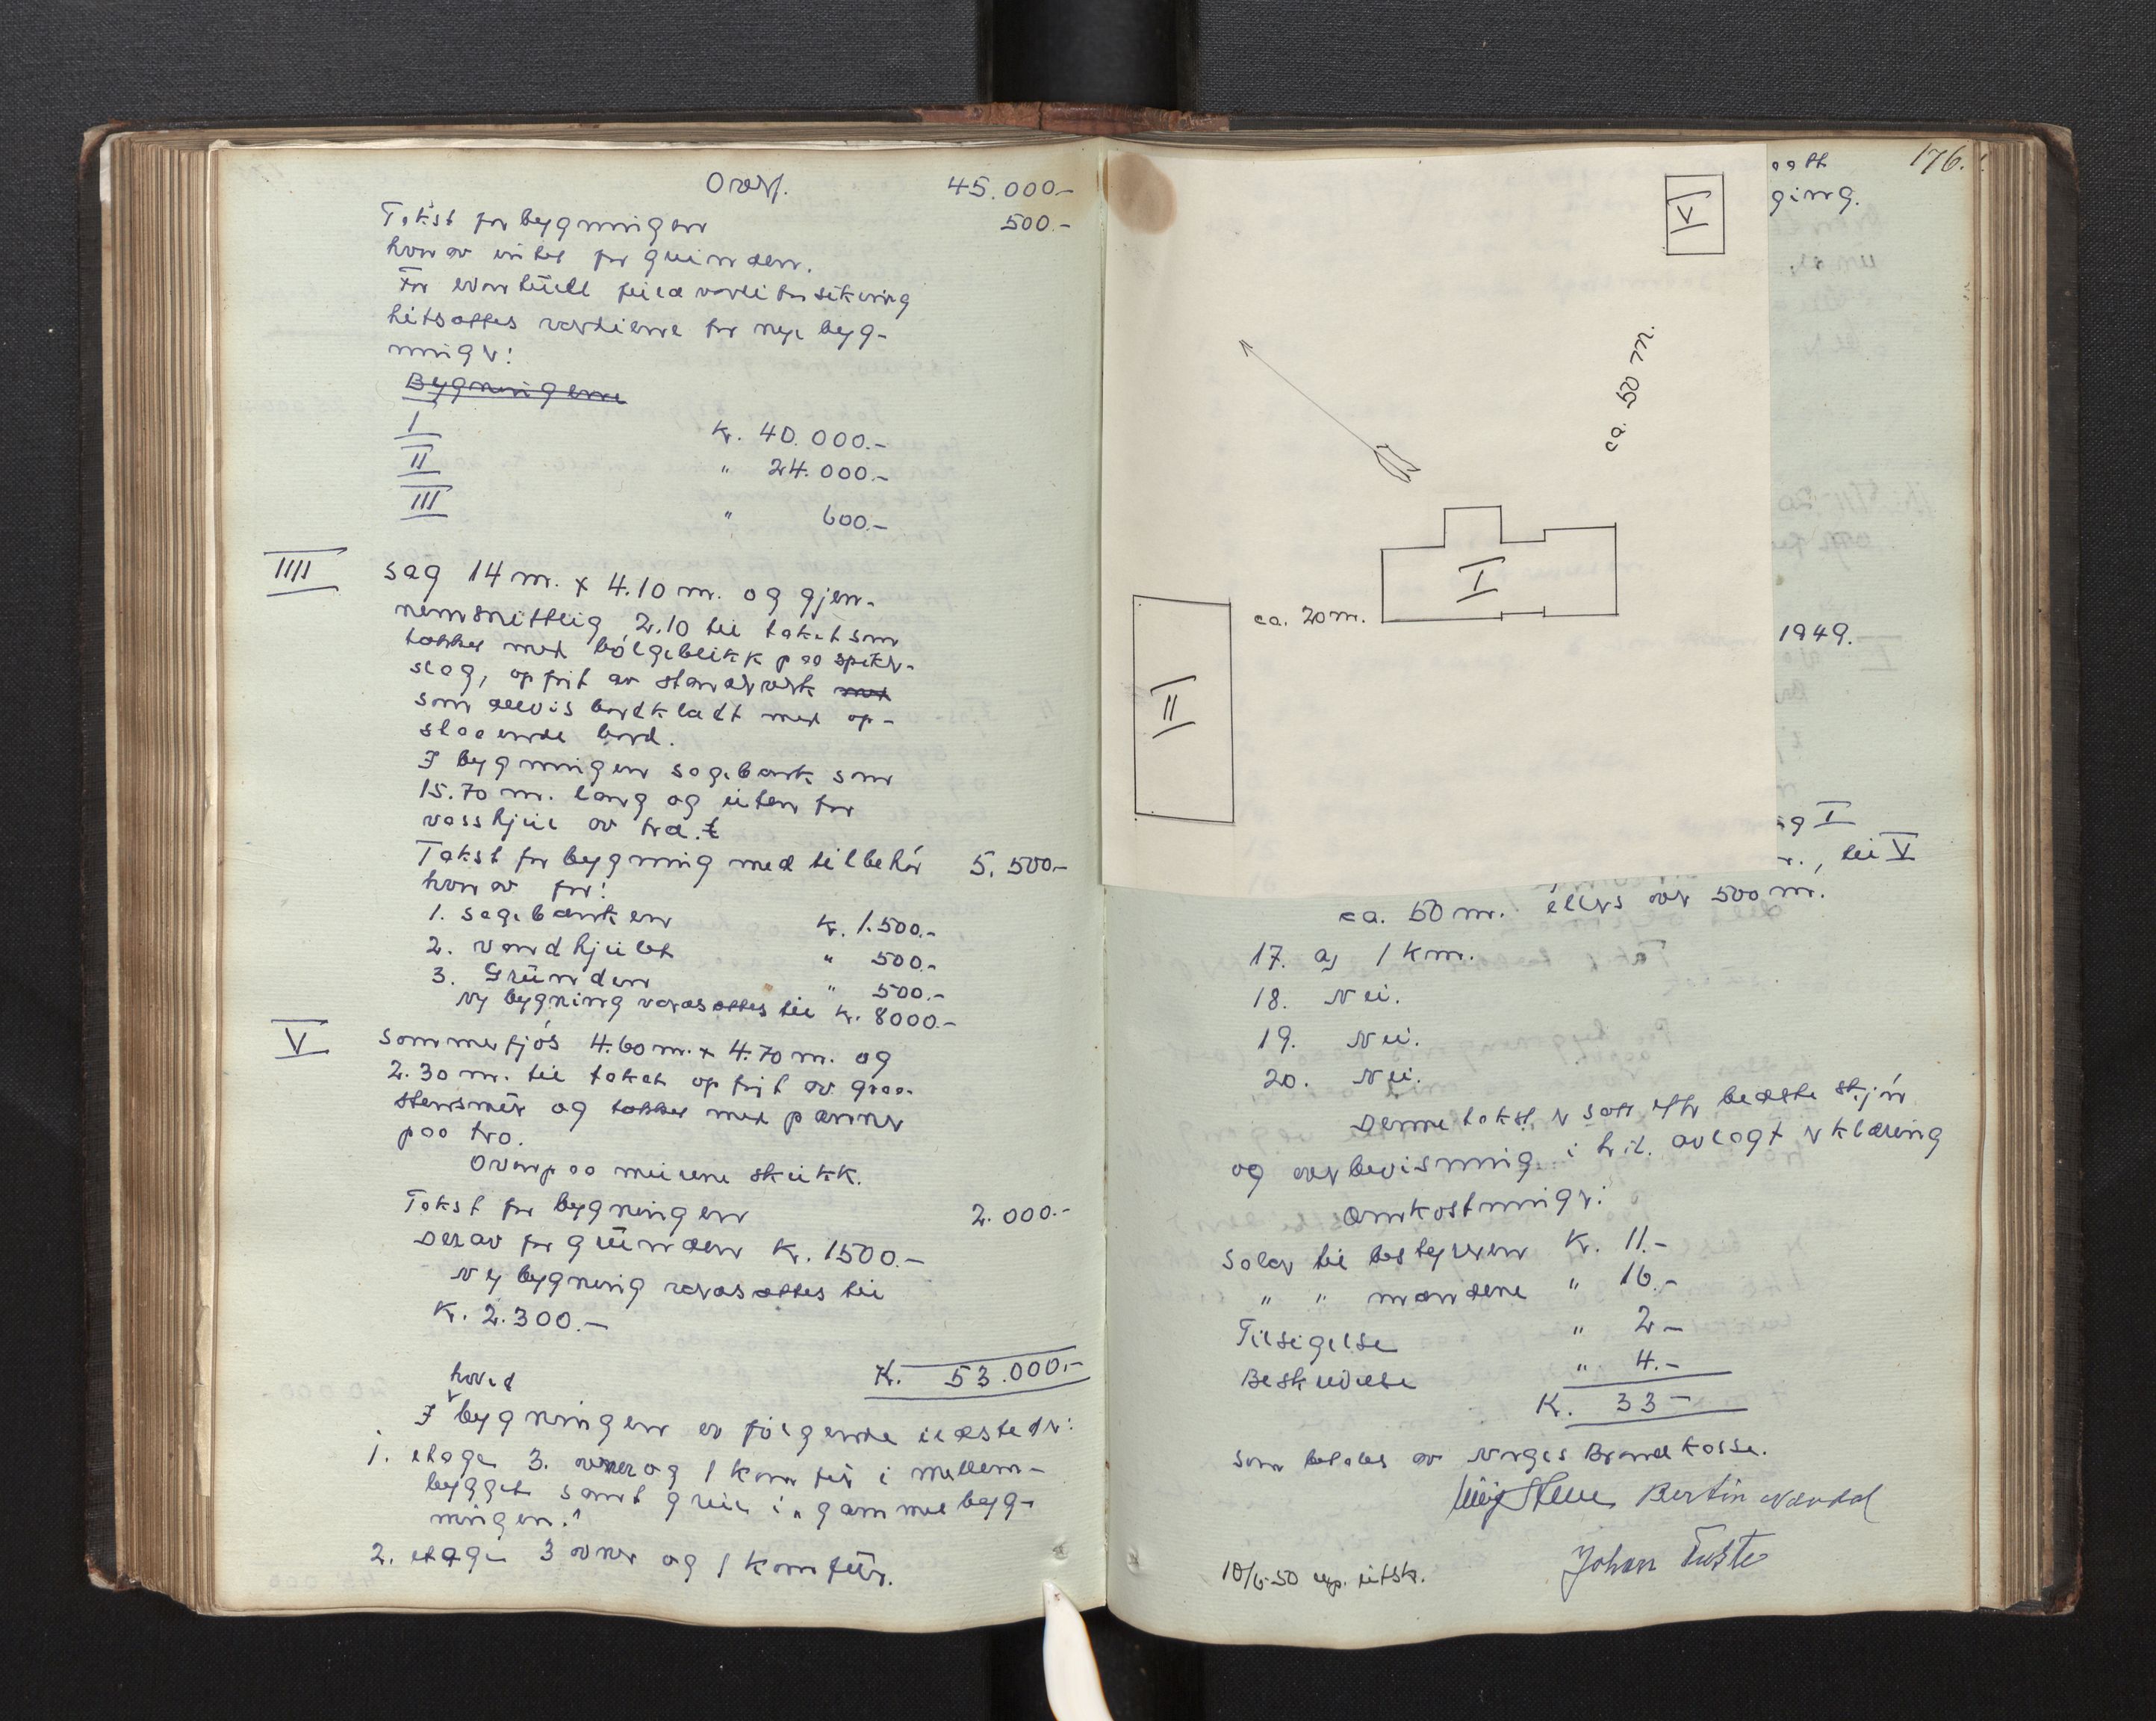 Overf. 45.000.-
Takst for bygningen 500.-
hvorav intet for grunden.
For eventuell fullverdiforsikring
hitsættes verdierne for nye byg-
ninger:
Bygningerne
I Kr. 40.000.-
II " 24.000.-
III " 600.-
IIII Sag 14 m. x 4.10 m. og gjen-
nemsnittlig 2.10 til taket som
tækket med bølgeblikk paa spiker-
slag, opført av stenderverk med
som delvis bordklædt med op-
staaende bord.
I bygningen sagbenk som
15.70 m. lang og uten for
vasshjul av træ.
Takst for bygning med tilbehør 5.500.-
hvorav for:
1. Sagbenken Kr. 1.500.-
2. Vandhjulet " 500.-
3. Grunden " 500.-
Ny bygning værdsættes til Kr. 8000.-
V Sommerfjøs 4.60 m. x 4.70 m. og
2.30 m. til taket opført av graa-
stensmur og tækket med panner
paa tro.
Ovenpaa murene skukk.
Takst for bygningen 2.000.-
Derav for grunden Kr. 1500.-
Ny bygning værdsættes til
Kr. 2.300.-
K. 53.000.-
hoved
I bygningen er følgende ildsteder:
1. etage 3. ovner og 1 komfür i mellem-
bygget samt grue i "gammelbyg-
ningen."
2. etage 3 ovner og 1 komfür.
176.
ging.
V
ca. 50 m.
I
ca. 20 m.
II
1949.
I
til V
ca. 50 m. ellers over 500 m.
17. a) 1 km.
18. Nei.
19. Nei.
20. Nei.
Denne takst er satt efter bedste skjøn
og overbevisning i h.t. avlagt erklæring
Omkostninger:
Salær til bestyreren Kr. 11.-
" " mændene " 16.-
Tilsigelse " 2-
Beskrivelse " 4.-
K. 33-
som betales av Norges Brandkasse.
Bertin
Johan
10/6-50 utsk.